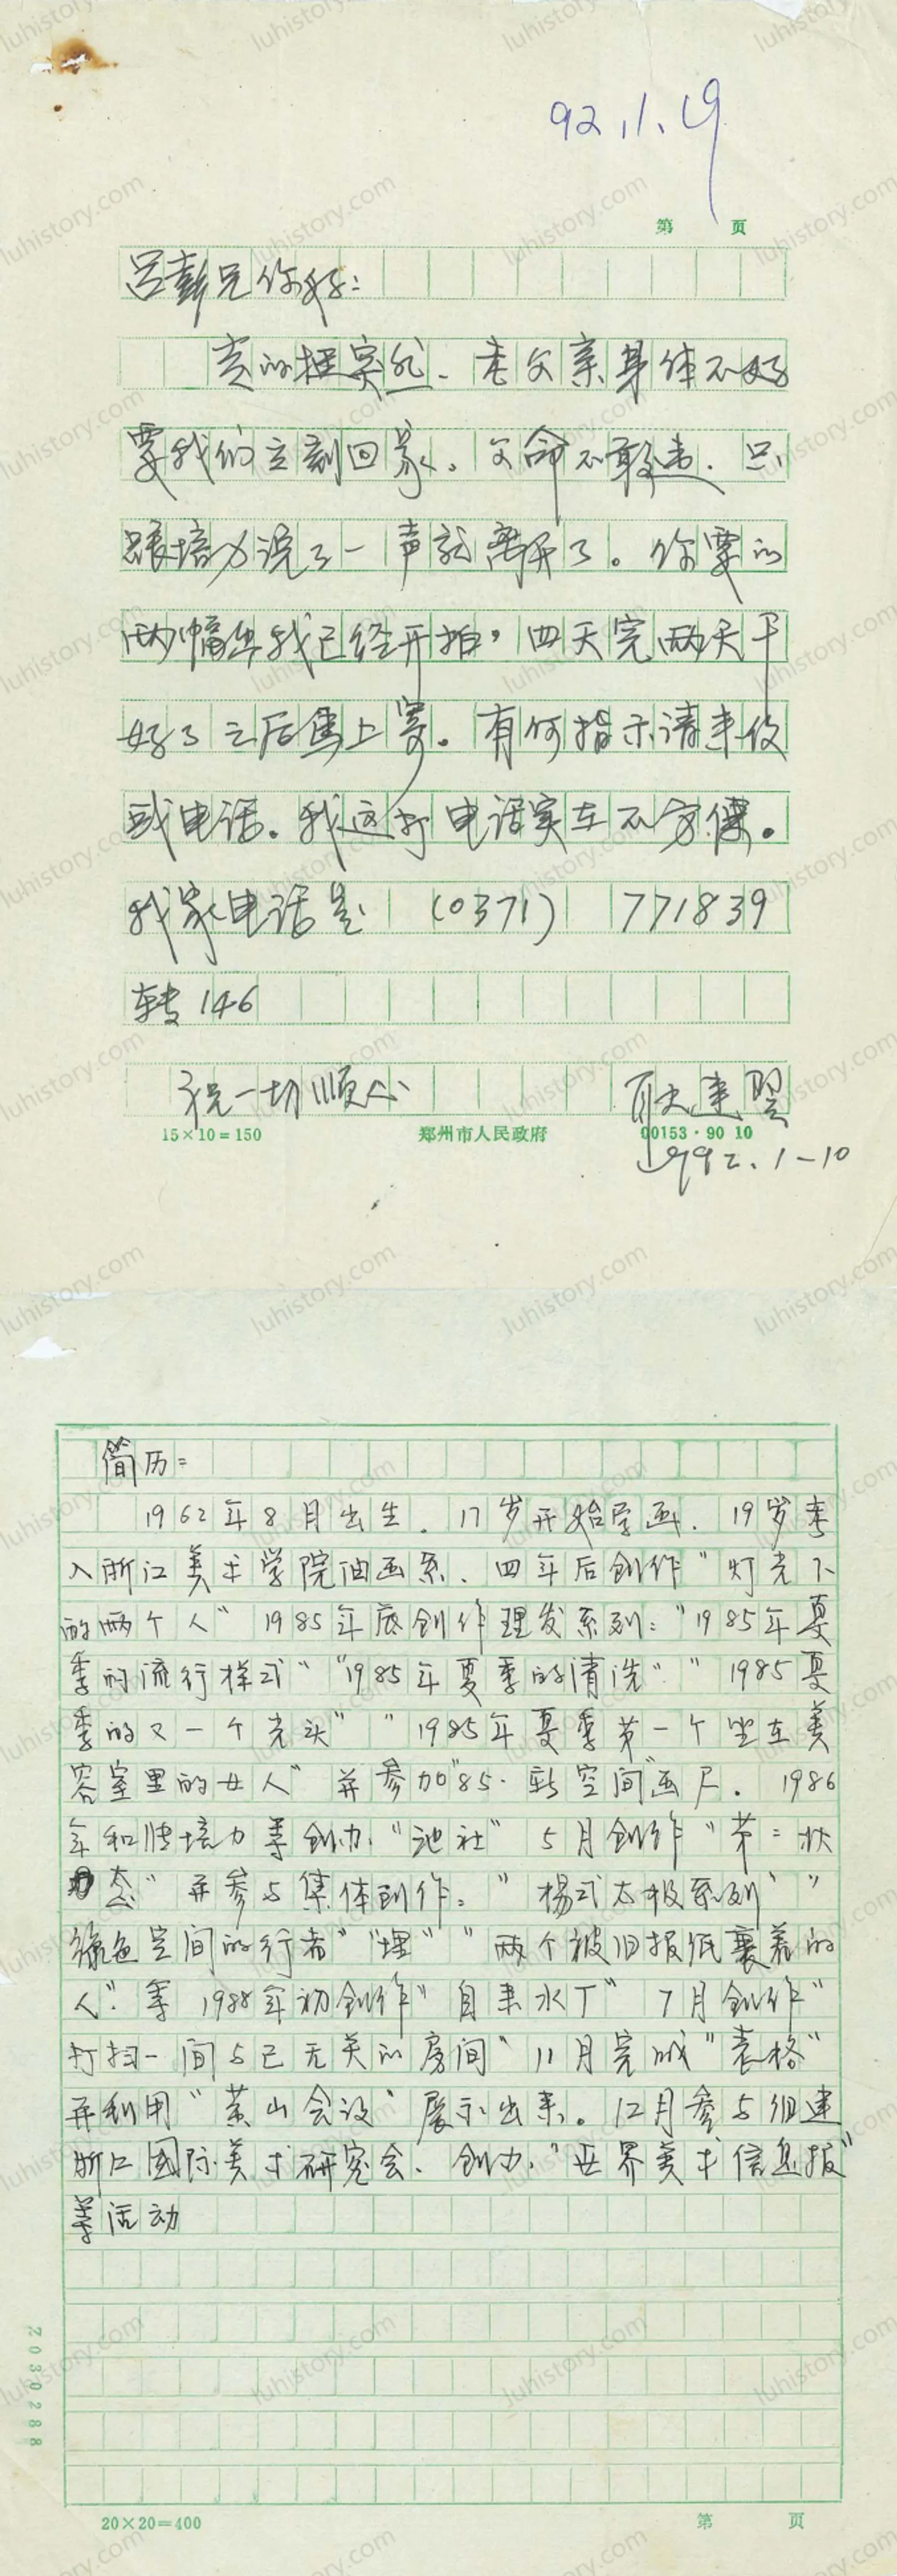 92.1.19
第 页
吕彭兄你好:
真的挺突然、老父亲身体不好
要我们立刻回家。父命不敢违.只
跟培力说了一声就离开了。你要的
两幅画我已经开拍,四天完两天干
好了之后马上寄。有何指示请来信
或电话。我这打电话实在不方便。
我家电话是 (0371) 771839
转146
祝一切顺心 耿建翌
15×10=150 郑州市人民政府 00153·90 10
1992.1-10
简历:
1962年8月出生.17岁开始学画.19岁考
入浙江美术学院油画系、四年后创作"灯光下
的两个人"1985年底创作理发系列:"1985年夏
季的流行样式""1985年夏季的清洗""1985夏
季的又一个光头""1985年夏季第一个坐在美
容室里的女人"并参加"85·新空间"画展.1986
年和张培力等创办"池社"5月创作"第二状
态"并参与集体创作:"杨式太极系列""
绿色空间的行者""埋""两个被旧报纸裹着的
人".等 1988年初创作"自来水厂"7月创作"
打扫一间与己无关的房间"11月完成"表格"
并利用"黄山会议"展示出来。12月参与组建
浙江国际美术研究会、创办"世界美术信息报"
等活动
Z030288
20×20=400 第 页
luhistory.com